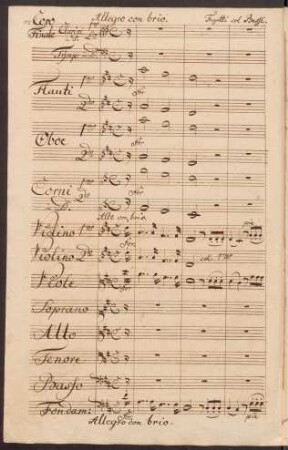 Coro Allegro con brio. Fagotti col Basso.
Finale Clarini
Timp:
Flauti 1mo
2do
Oboe 1mo
2do
Corni 1mo
2do
D:
Allo con brio
Violino 1mo
Violino 2do
col 1mo
Viole
Soprano
Alto
Tenore
Basso
Fondam:
Allegro con brio.